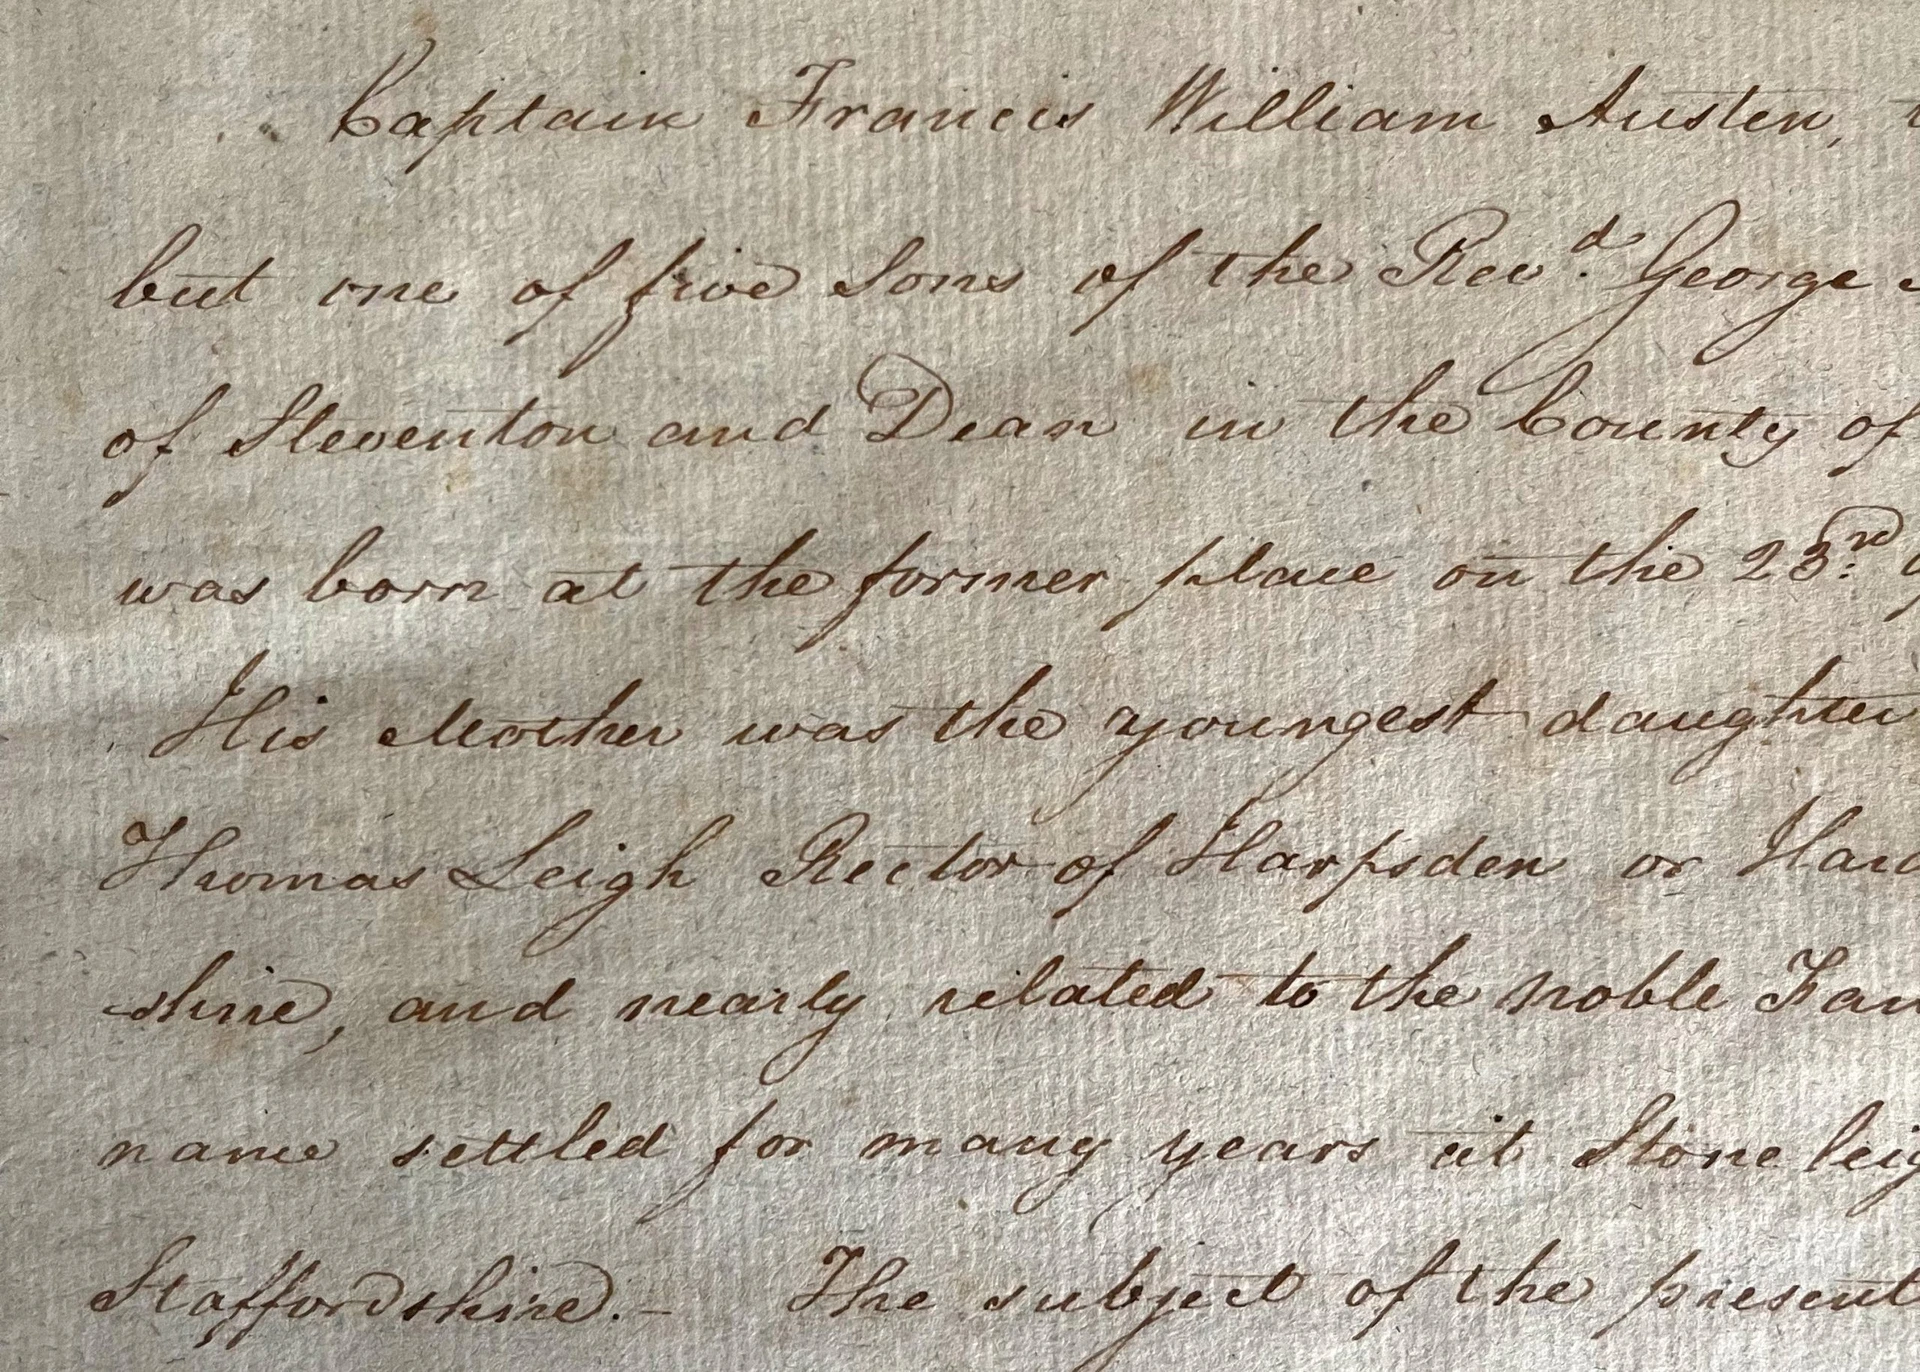 Captain Francis William Austen,
but one of five Sons of the Revd. George
of Steventon and Dean in the County of
was born at the former place on the 23rd.
His Mother was the youngest daughter
Thomas Leigh Rector of Harpsden or
-shire, and nearly related to the noble
name settled for many years at Stone
Staffordshire. - The subject of the present